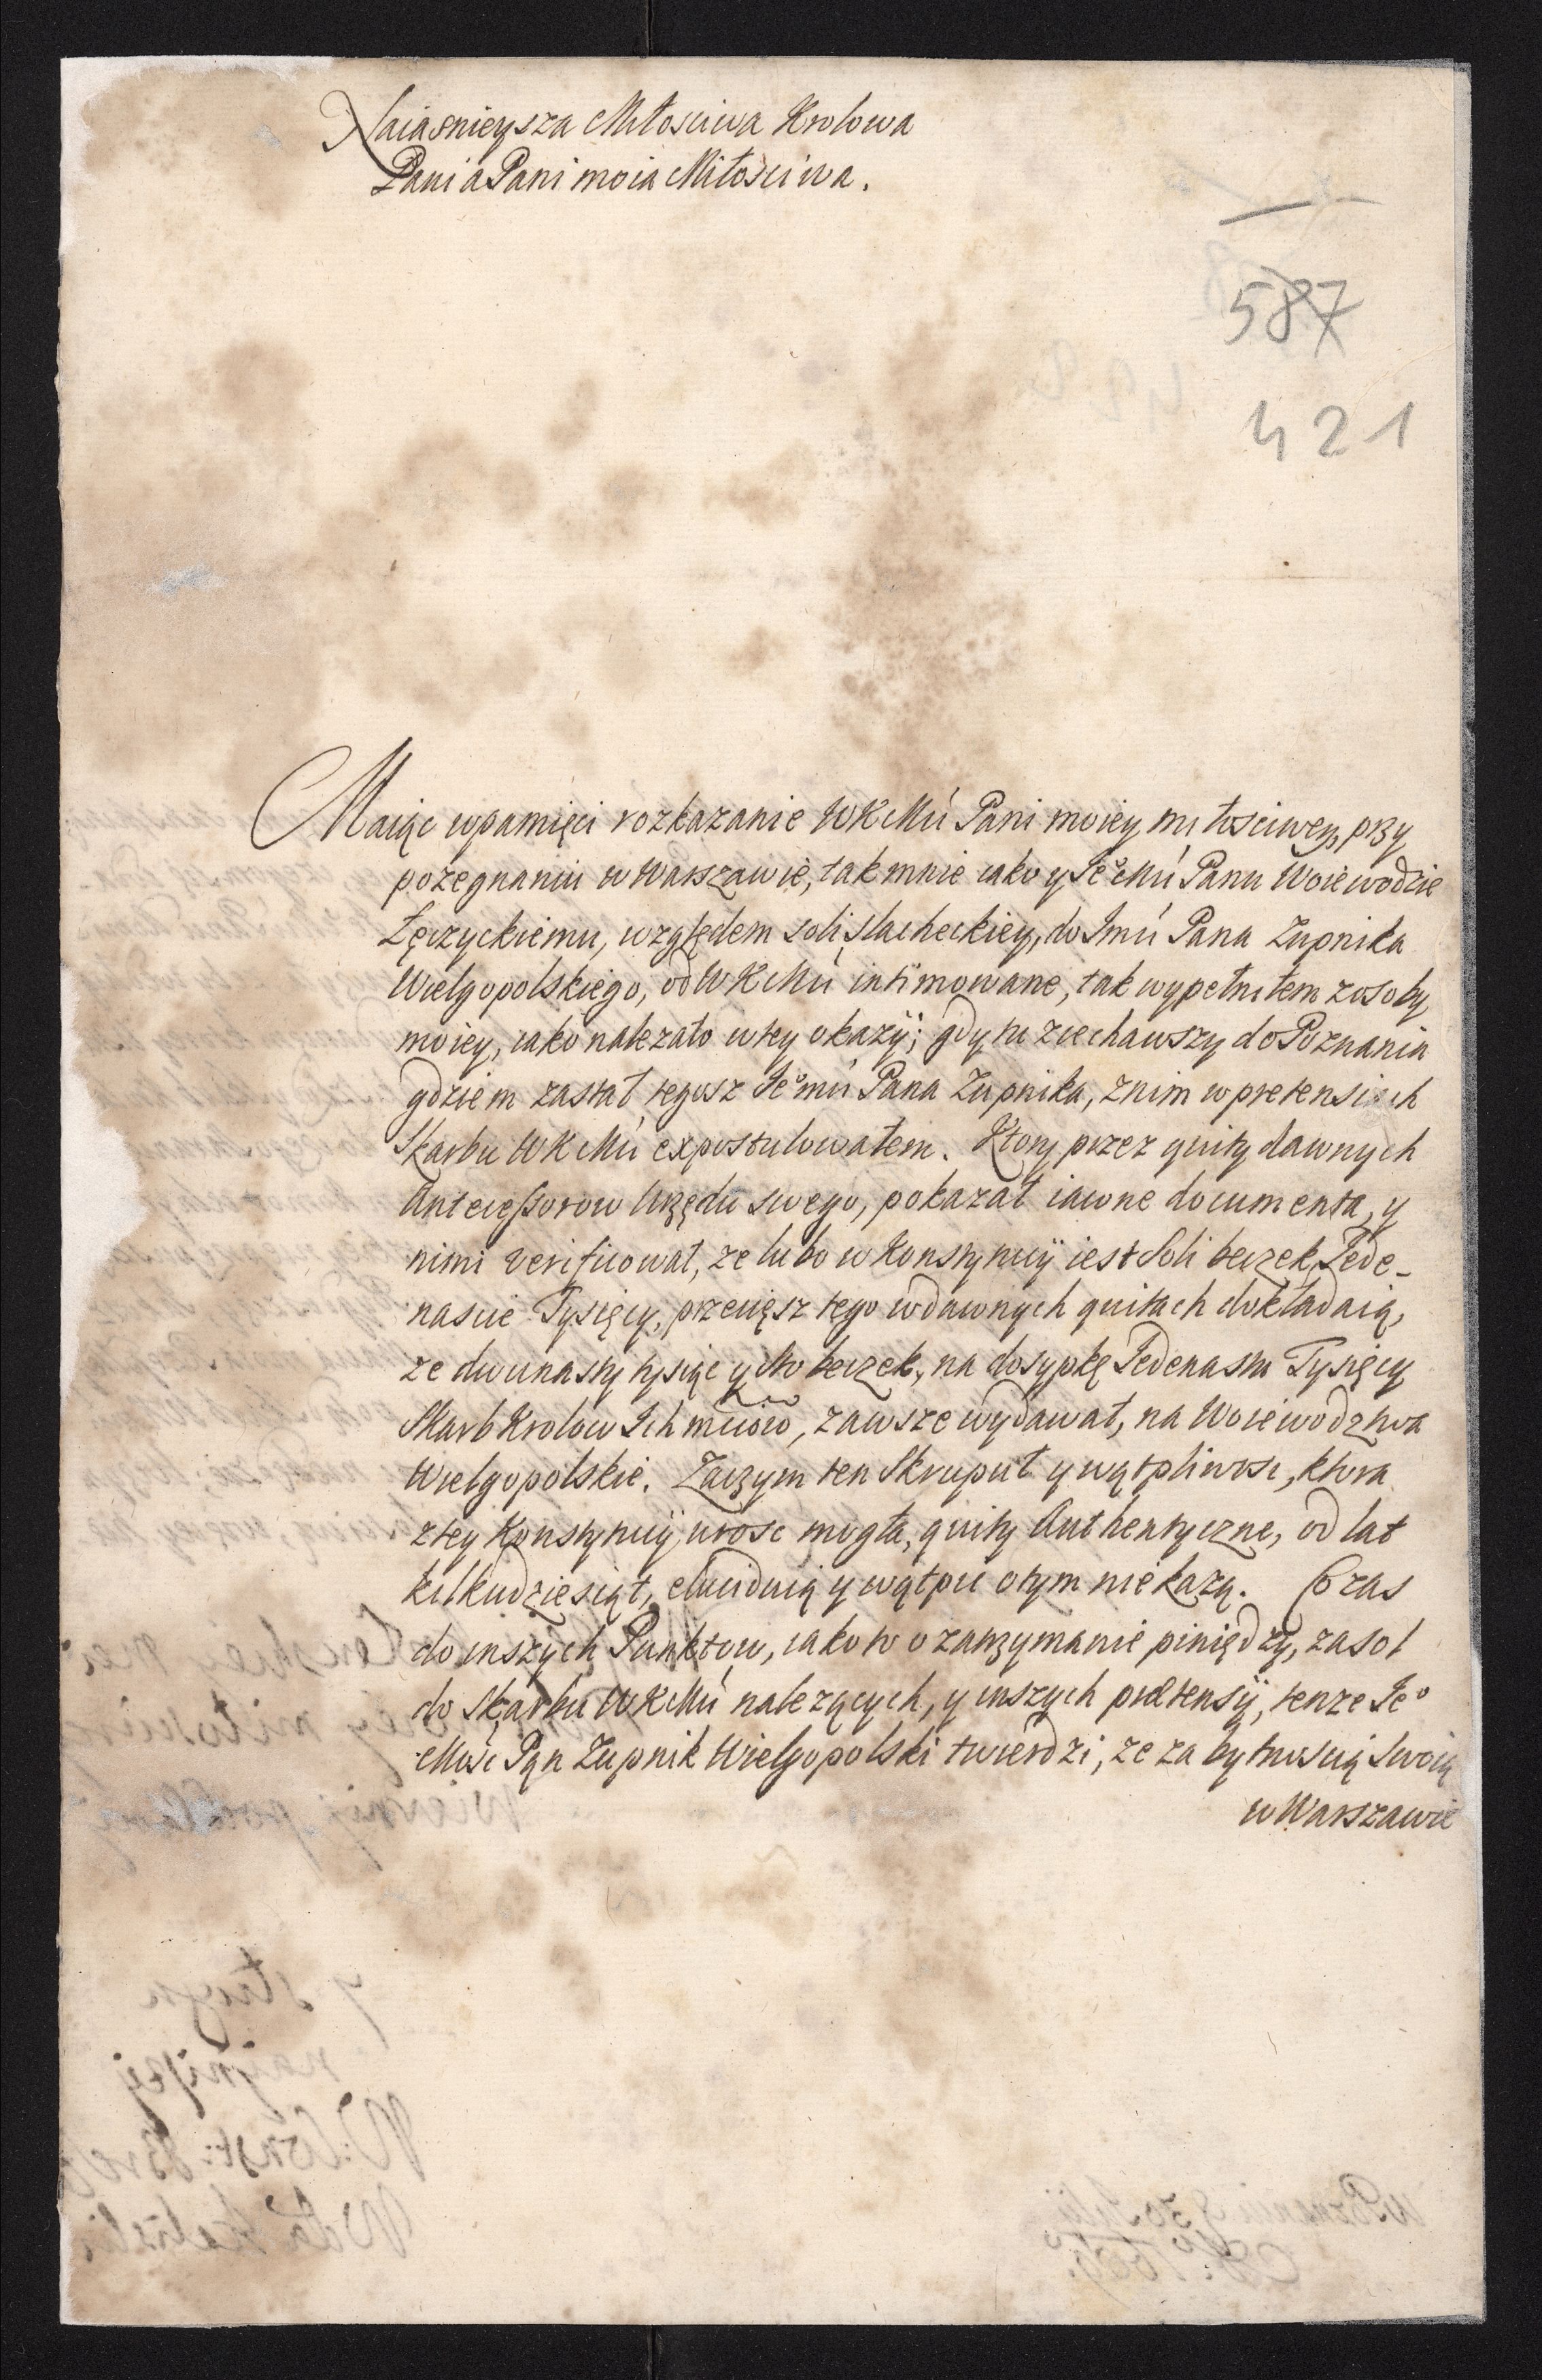 Naiasnieysza Miłosciwa Krolowa
Pani a Pani moia Miłosciwa.
587
421
Maiąc w pamięci rozkazanie WKMći Pani moiey miłosciwey, przy
pożegnaniu w Warszawie, tak mnie iako y Jeº Mći Panu Woiewodzie
Łęczyckiemu, względem soli slacheckiey, do Jmći Pana Zupnika
Wielgopolskiego, od WKMći intimowane, tak wypełniłem z osoby
moiey, iako nalezało w tey okazyi; gdy tu ziechawszy do Poznania
gdziem zastał tegosz Jeº mći Pana Zupnika, z nim w pretensiach
Skarbu WKMći expostulowałem. Ktory przez quity dawnych
Antecessorow Urzędu swego, pokazał iawne documenta, y
nimi verificował, ze lubo w Konstytucyi iest Soli beczek Jede-
nascie Tysięcy, przecięsz tego w dawnych quitach dokładaią,
ze dwunasty tysiąc y sto beczek, na dosypkę Jedenastu Tysięcy
Skarb Krolow Ich mciow, zawsze wydawał, na Woiewodztwa
Wielgopolskie. Zaczym ten Skrupuł y wątpliwosc, ktora
z tey Konstytucyi urosc mogła, quity Authentyczne, od lat
kilkudziesiąt, eluciduią y wątpic o tym nie kazą. Czas
do inszych Punktow, iako to o zatrzymanie piniędzy, za sol
do Skarbu WKMći nalezących, y inszych praetensyi, tenze Jeº
Mośc Pan Zupnik Wielgopolski twierdzi, ze za bytnoscią swoią
w Warszawie